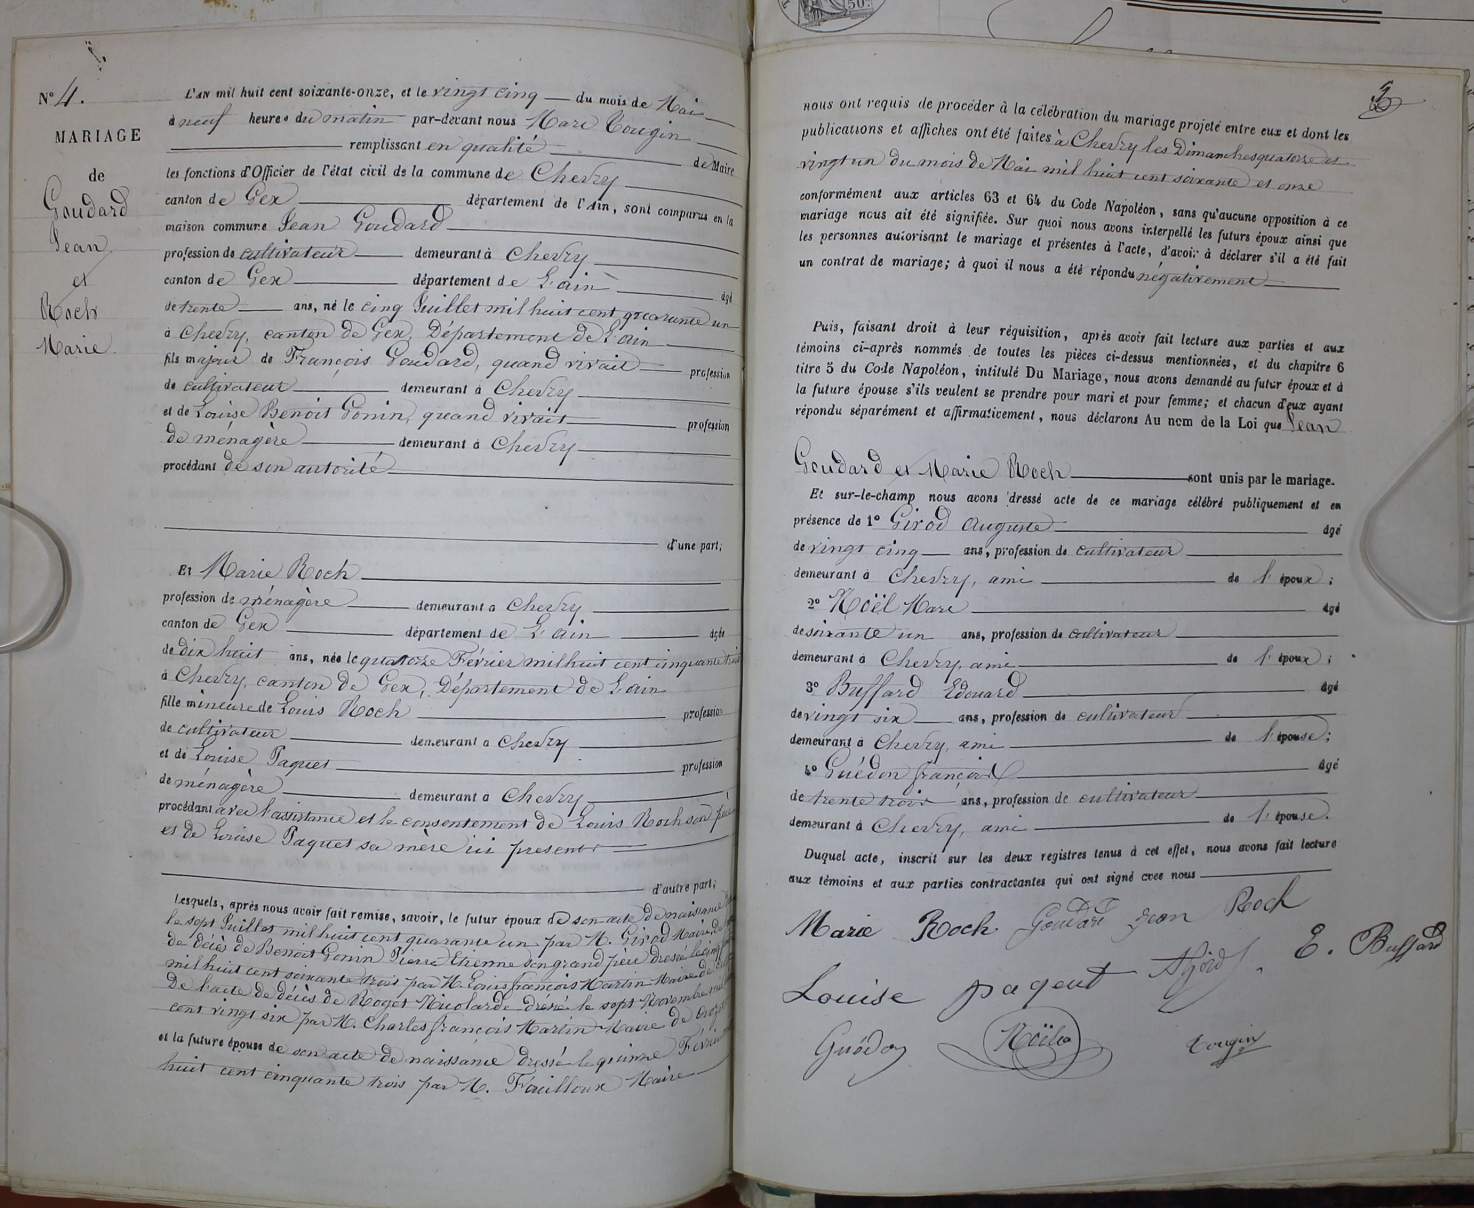 N° 4.
MARIAGE
de
Goudard
Jean
et
Roch
Marie.
L'AN mil huit cent soixante-onze, et le vingt cinq du mois de Mai
à neuf heures du matin par-devant nous Marc Tougin
remplissant en qualité de Maire
les fonctions d'Officier de l'état civil de la commune de Chevry
canton de Gex département de l'Ain, sont comparus en la
maison commune Jean Goudard
profession de cultivateur demeurant à Chevry
canton de Gex département de L'ain âgé
de trente ans, né le cinq Juillet mil huit cent quarante un
à Chevry, canton de Gex, Département de L'ain
fils majeur de François Goudard, quand vivait profession
de cultivateur demeurant à Chevry
et de Louise Benoit Gonin, quand vivait profession
de ménagère demeurant à Chevry
procédant de son autorité
d'une part;
Et Marie Roch
profession de ménagère demeurant à Chevry
canton de Gex département de L'ain âgée
de dix huit ans, née le quatorze Février mil huit cent cinquante trois
à Chevry, canton de Gex, Département de L'ain
fille mineure de Louis Roch profession
de cultivateur demeurant à Chevry
et de Louise Paquet profession
de ménagère demeurant à Chevry
procédant avec l'assistance et le consentement de Louis Roch son père
et de Louise Paquet sa mère ici présents
d'autre part;
Lesquels, après nous avoir fait remise, savoir, le futur époux de son acte de naissance
le sept Juillet mil huit cent quarante un par M. Girod Maire de
de décès de Benoit Gonin Pierre Etienne son grand père dressé le cinq
mil huit cent soixante trois par M. Louis françois Martin Maire de
De l'acte de décès de Roget Nicolarde dressé le sept Novembre mil
cent vingt six par M. Charles françois Martin Maire de
et la future épouse de son acte de naissance dressé le quinze Février
huit cent cinquante trois par M. Fouilloux Maire
nous ont requis de procéder à la célébration du mariage projeté entre eux et dont les
publications et affiches ont été faites à Chevry les Dimanches quatorze et
vingt un du mois de Mai mil huit cent soixante et onze
conformément aux articles 63 et 64 du Code Napoléon, sans qu'aucune opposition à ce
mariage nous ait été signifiée. Sur quoi nous avons interpellé les futurs époux ainsi que
les personnes autorisant le mariage et présentes à l'acte, d'avoir à déclarer s'il a été fait
un contrat de mariage; à quoi il nous a été répondu négativement
Puis, faisant droit à leur réquisition, après avoir fait lecture aux parties et aux
témoins ci-après nommés de toutes les pièces ci-dessus mentionnées, et du chapitre 6
titre 5 du Code Napoléon, intitulé Du Mariage, nous avons demandé au futur époux et à
la future épouse s'ils veulent se prendre pour mari et pour femme; et chacun d'eux ayant
répondu séparément et affirmativement, nous déclarons Au nom de la Loi que Jean
Goudard et Marie Roch sont unis par le mariage.
Et sur-le-champ nous avons dressé acte de ce mariage célébré publiquement et en
présence de 1° Girod Auguste âgé
de vingt cinq ans, profession de cultivateur
demeurant à Chevry, ami de l'époux;
2° Noël Marc âgé
de soixante un ans, profession de cultivateur
demeurant à Chevry, ami de l'époux;
3° Buffard Edouard âgé
de vingt six ans, profession de cultivateur
demeurant à Chevry, ami de l'épouse;
4° Guédon françois âgé
de trente trois ans, profession de cultivateur
demeurant à Chevry, ami de l'épouse.
Duquel acte, inscrit sur les deux registres tenus à cet effet, nous avons fait lecture
aux témoins et aux parties contractantes qui ont signé avec nous
Marie Roch Goudard Jean Roch
E. Buffard
Louise paqeut
Guédon Noël Tougin